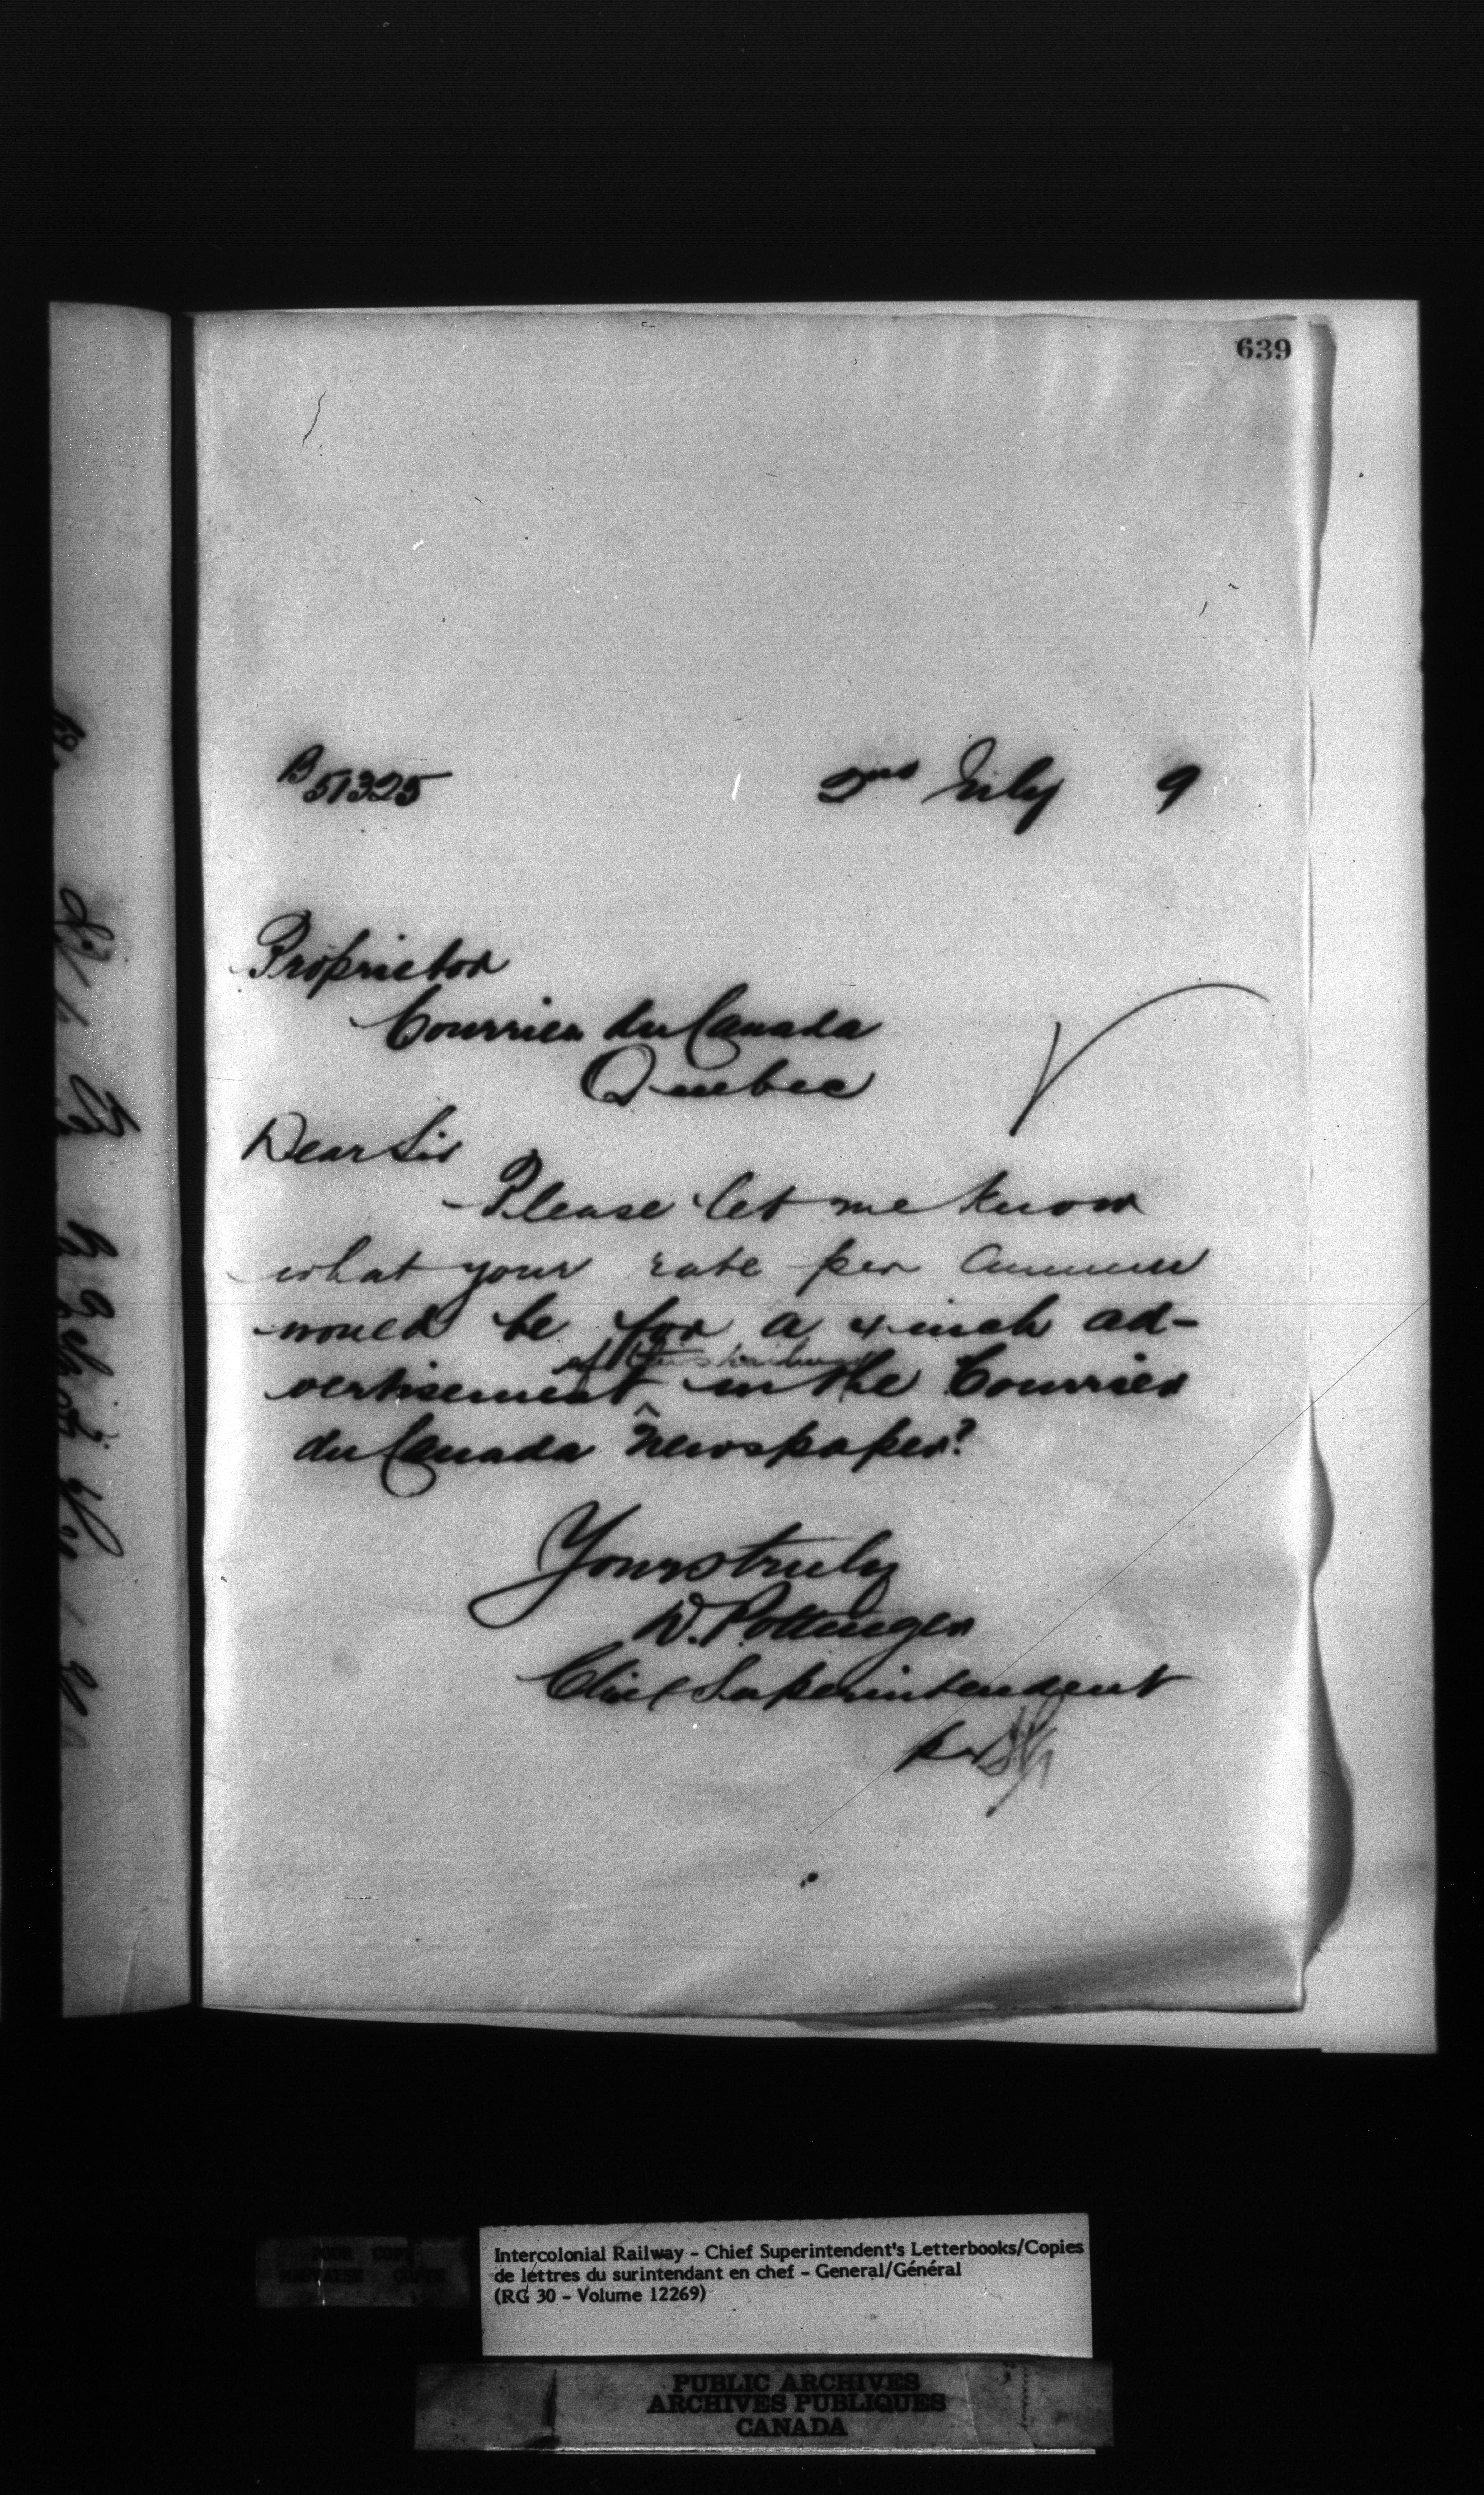 639
B 51325 2nd July 9
Proprietor
Courrier du Canada
Quebec
Dear Sir
Please let me know
what your rate per annum
would be for a 4 inch ad-
of this
vertisement in the Courrier
du Canada newspaper?
Yours truly
D. Pottinger
Chief Superintendent
per
Intercolonial Railway - Chief Superintendent's Letterbooks/Copies
de lettres du surintendant en chef - General/Général
(RG 30 - Volume 12269)
POOR COPY
MAUVAISE COPIE
PUBLIC ARCHIVES
ARCHIVES PUBLIQUES
CANADA